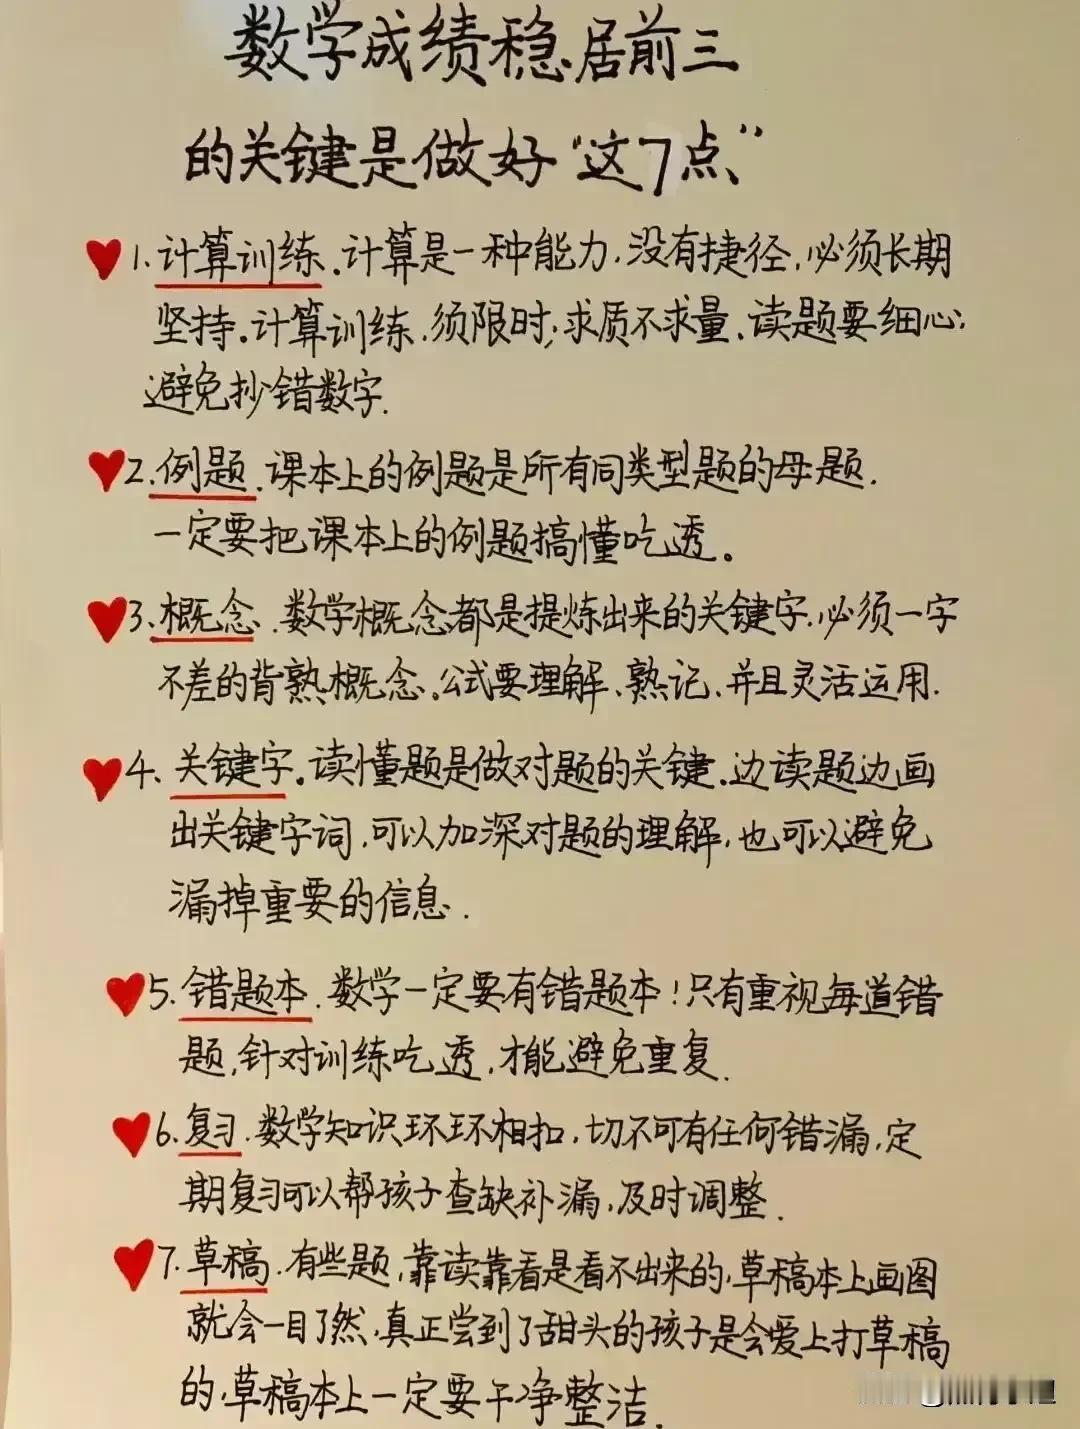 数学成绩稳居前三
的关键是做好“这7点”
1.计算训练.计算是一种能力,没有捷径,必须长期
坚持。计算训练,须限时;求质不求量,读题要细心;
避免抄错数字.
2.例题.课本上的例题是所有同类型题的母题.
一定要把课本上的例题搞懂吃透。
3.概念.数学概念都是提炼出来的关键字,必须一字
不差的背熟概念。公式要理解、熟记、并且灵活运用.
4、关键字。读懂题是做对题的关键.边读题边画
出关键字词,可以加深对题的理解,也可以避免
漏掉重要的信息.
5.错题本.数学一定要有错题本!只有重视每道错
题,针对训练吃透,才能避免重复.
6.复习.数学知识环环相扣,切不可有任何错漏,定
期复习可以帮孩子查缺补漏,及时调整.
7.草稿.有些题,靠读靠看是看不出来的,草稿本上画图
就会一目了然,真正尝到了甜头的孩子是会爱上打草稿
的,草稿本上一定要干净整洁.